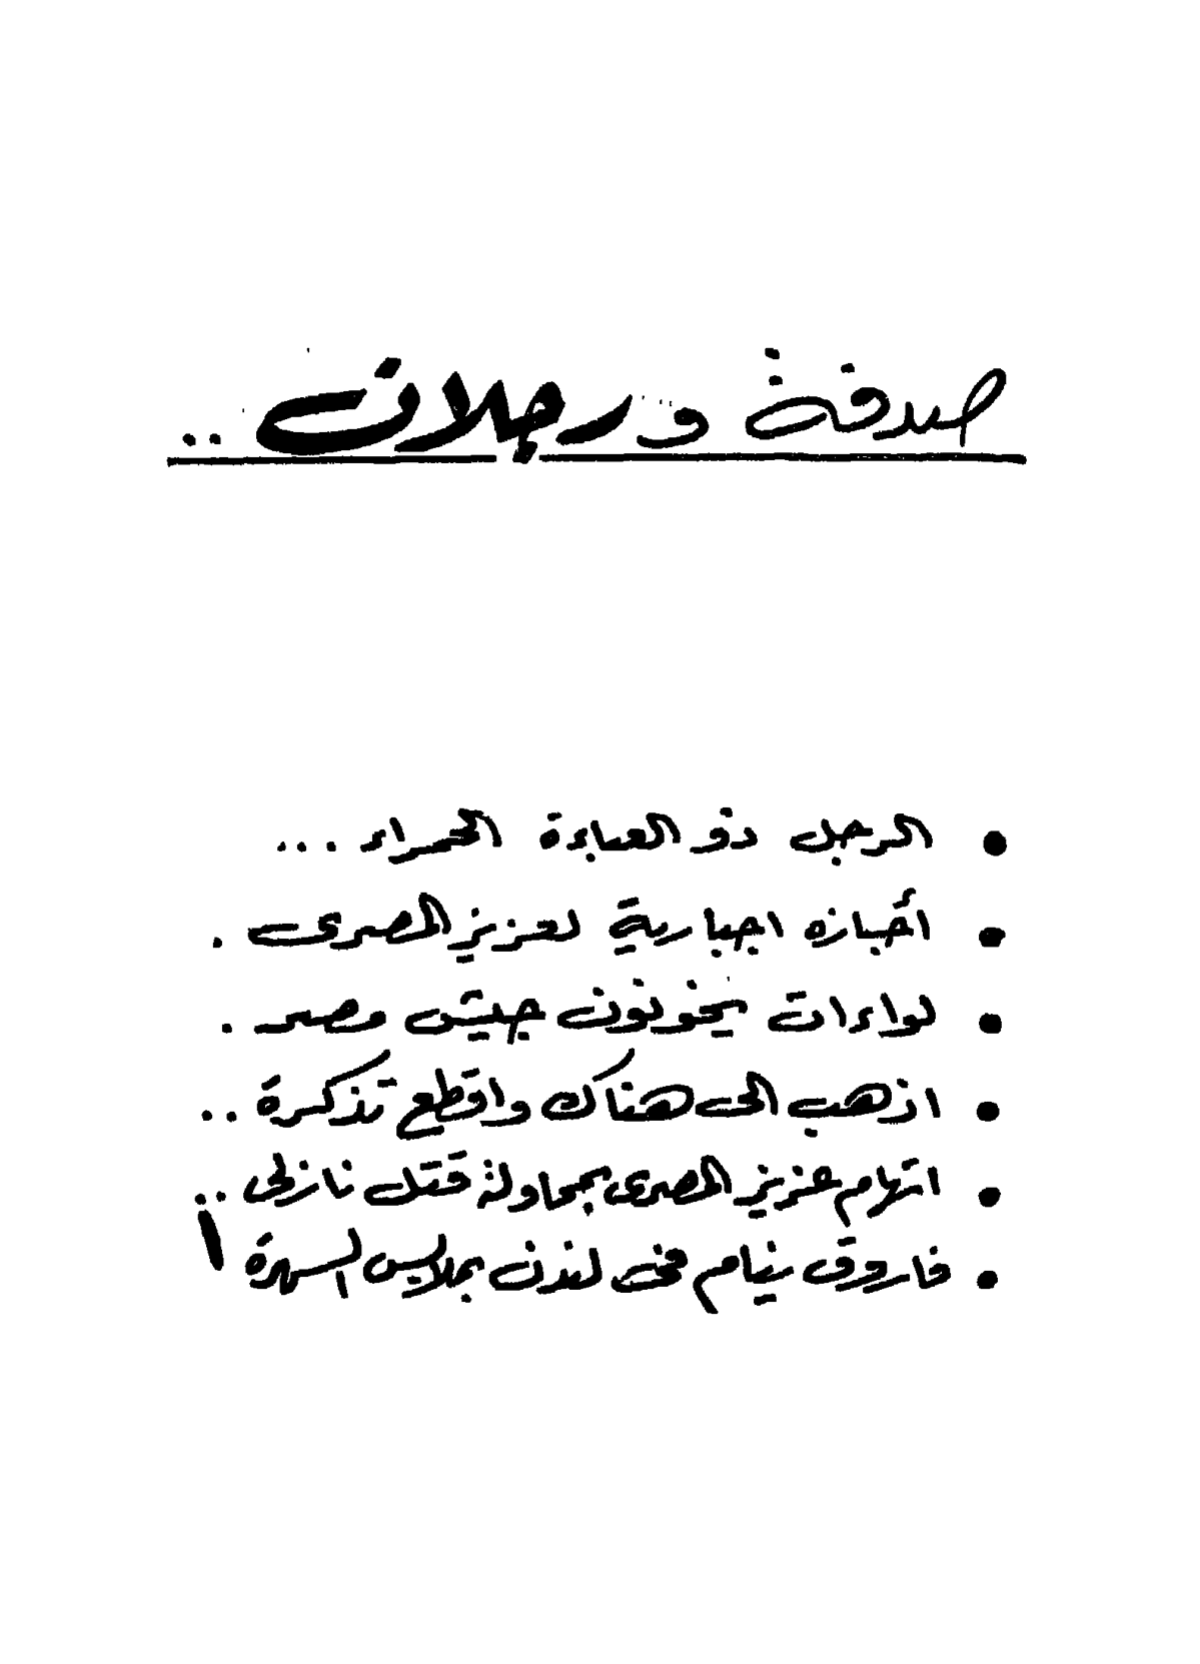 صدفة ورجلان ..
• الرجل ذو العباءة الحمراء ...
• أجازه اجبارية لعزيز المصرى .
• لواءات يخونون جيش مصر .
• اذهب الى هناك واقطع تذكرة ..
• اتهام عزيز المصرى بمحاولة قتل نازلى ..
• فاروق ينام فى لندن بملابس السهرة !